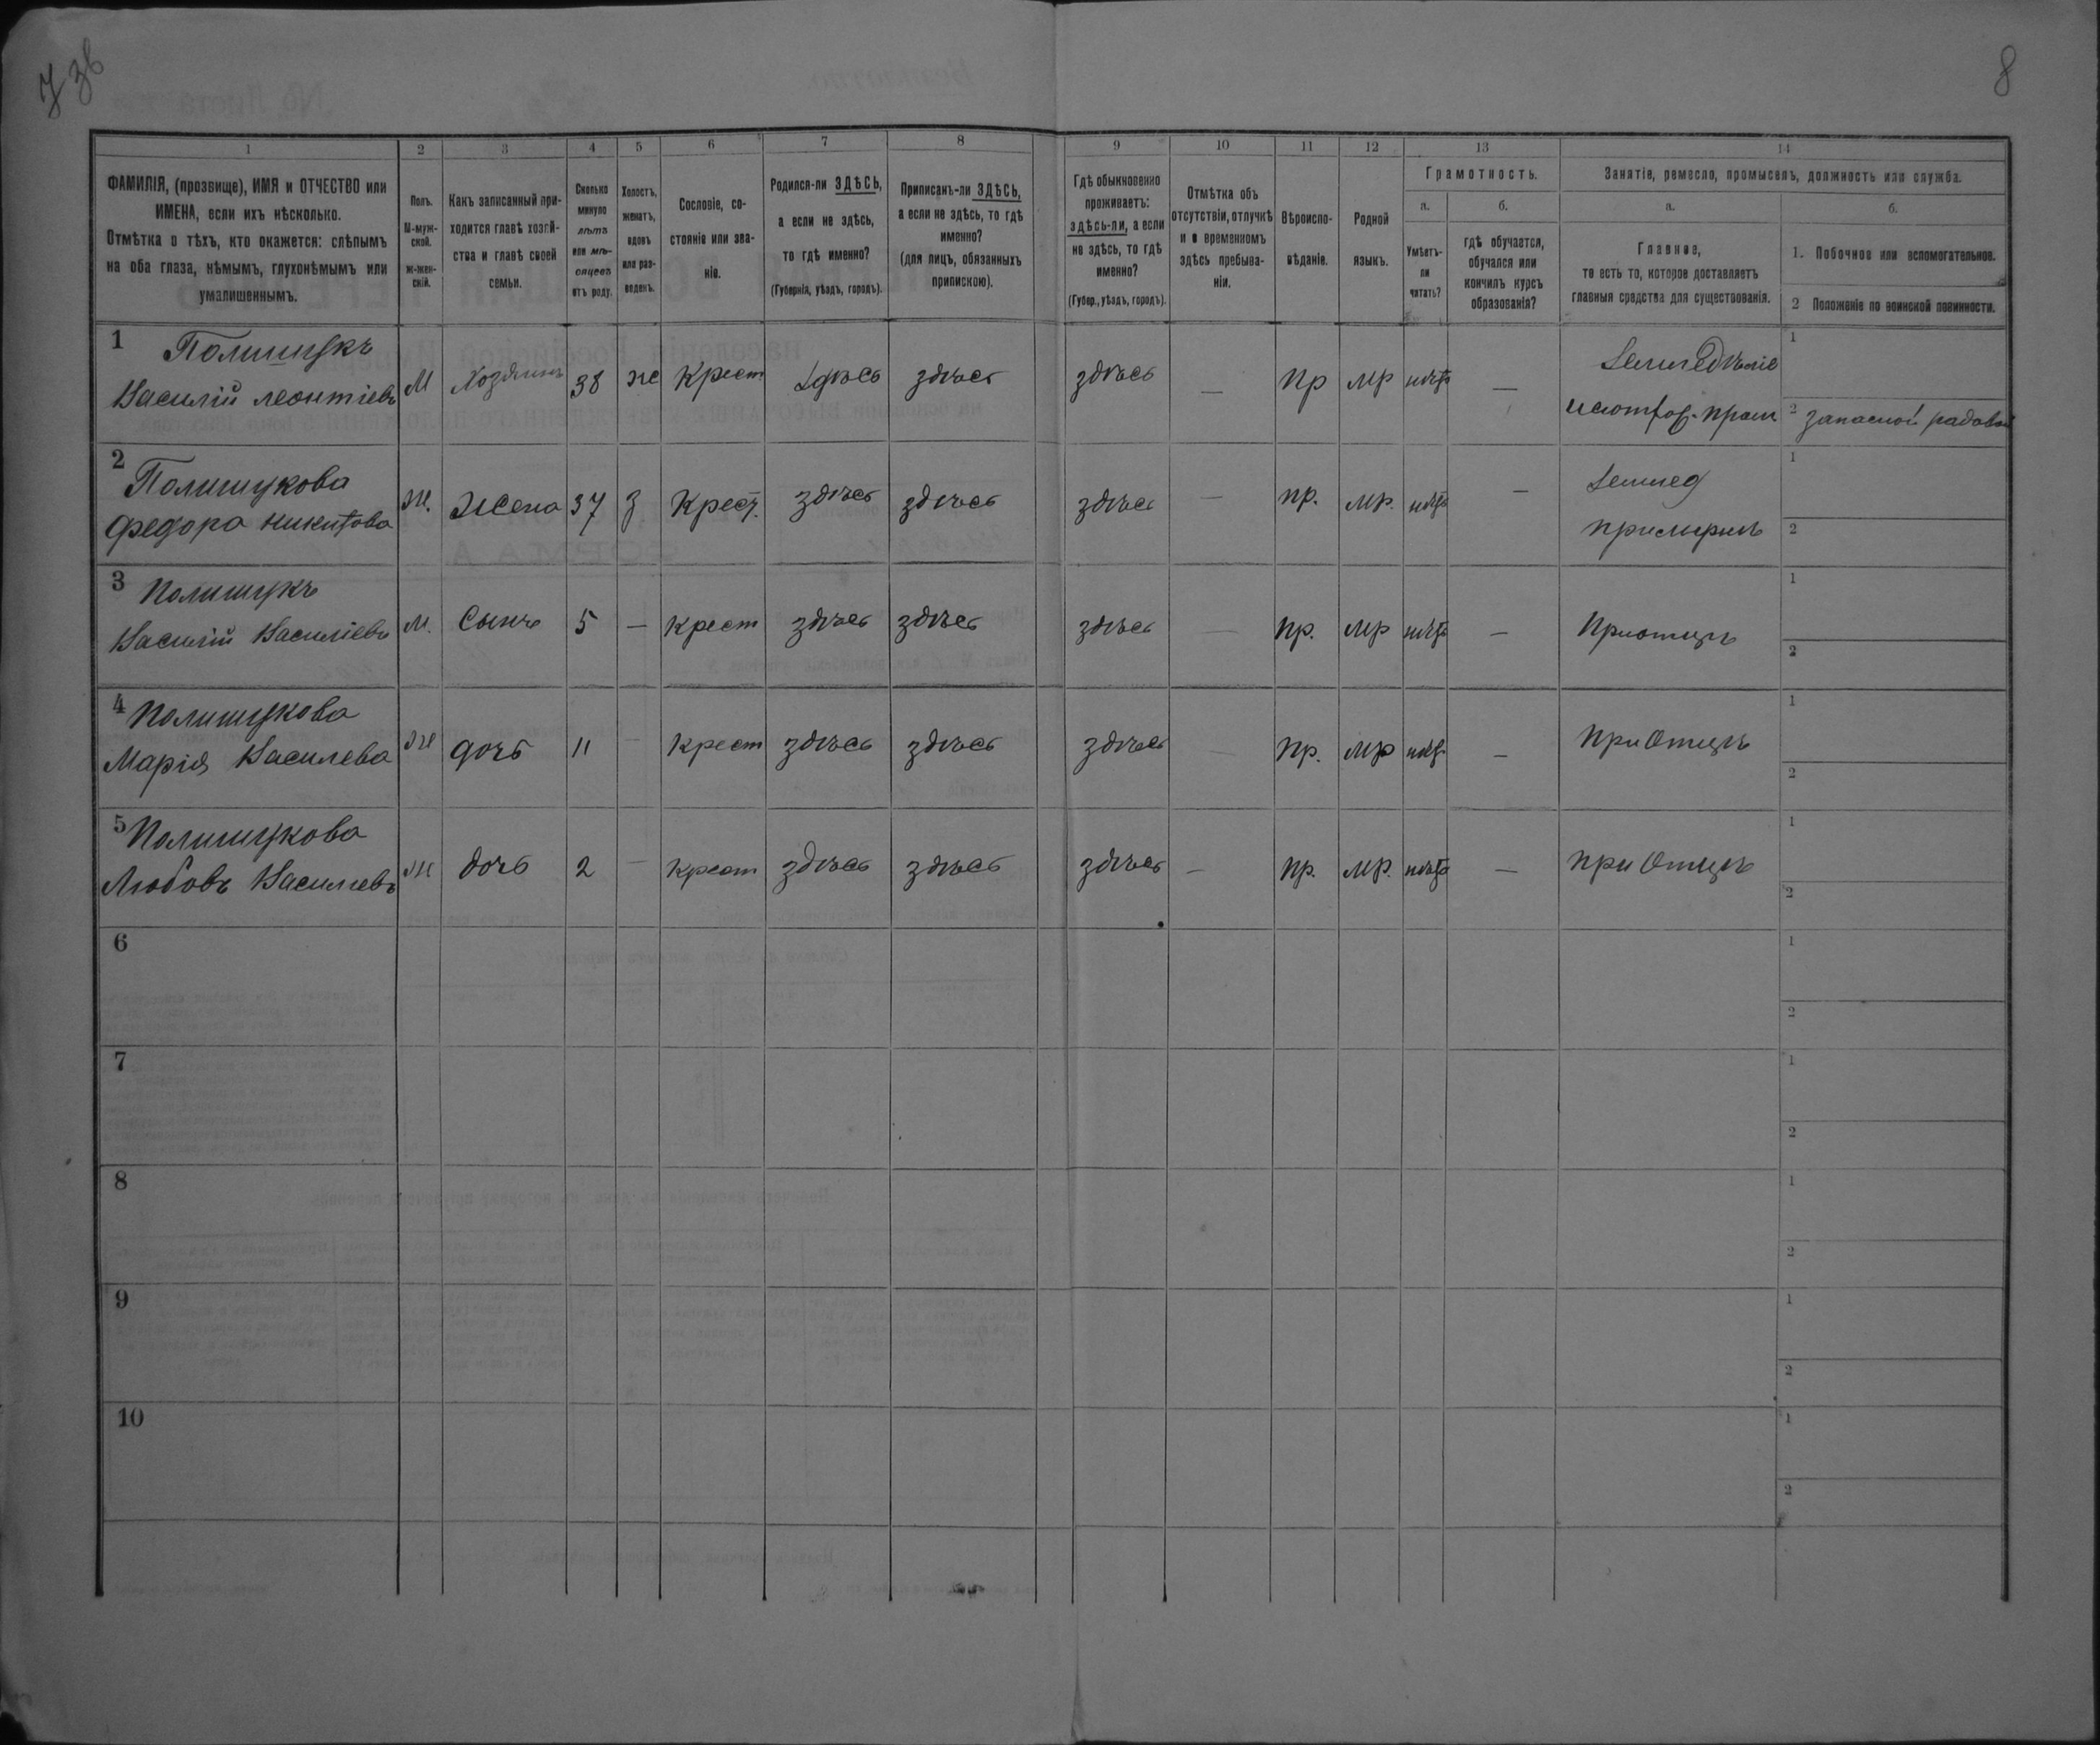 7 зв
8
1 2 3 4 5 6 7 8 9 10 11 12 13 14
ФАМИЛІЯ, (прозвище), ИМЯ и ОТЧЕСТВО или
ИМЕНА, если ихъ нѣсколько.
Отмѣтка о тѣхъ, кто окажется: слѣпымъ
на оба глаза, нѣмымъ, глухонѣмымъ или
умалишеннымъ.
Полъ.
М-муж-
ской.
ж-жен-
скій.
Какъ записанный при-
ходится главѣ хозяй-
ства и главѣ своей
семьи.
Сколько
минуло
лѣтъ
или мѣ-
сяцевъ
отъ роду.
Холостъ,
женатъ,
вдовъ
или раз-
веденъ.
Сословіе, со-
стояніе или зва-
ніе.
Родился-ли ЗДѢСЬ,
а если не здѣсь,
то гдѣ именно?
(Губернія, уѣздъ, городъ).
Приписанъ-ли ЗДѢСЬ,
а если не здѣсь, то гдѣ
именно?
(для лицъ, обязанныхъ
припискою).
Гдѣ обыкновенно
проживаетъ:
здѣсь-ли, а если
не здѣсь, то гдѣ
именно?
(Губер., уѣздъ, городъ).
Отмѣтка объ
отсутствіи, отлучкѣ
и о временномъ
здѣсь пребыва-
ніи.
Вѣроиспо-
вѣданіе.
Родной
языкъ.
Грамотность.
а.
Умѣетъ-
ли
читать?
б.
гдѣ обучается,
обучался или
кончилъ курсъ
образованія?
Занятіе, ремесло, промыселъ, должность или служба.
а.
Главное,
то есть то, которое доставляетъ
главныя средства для существованія.
б.
1. Побочное или вспомогательное.
2 Положеніе по воинской повинности.
1 Полищукъ
Василій леонтіевъ М Хозяинъ 38 же Крест здѣсь здѣсь здѣсь — пр мр нѣтъ —
1
2 запасной радовой
2 Полищукова
Федора Никитова Ж. Жена 37 з Крест. здѣсь здѣсь здѣсь — пр. мр. нѣтъ —
1
2
3 Полищукъ
Василій Василіевъ М. Сынъ 5 — крест здѣсь здѣсь здѣсь — пр. мр нѣтъ — При отцѣ
1
2
4 Полищукова
Марія Василева Ж дочь 11 — Крест здѣсь здѣсь здѣсь — пр. мр нѣт — При Отцѣ
1
2
5 Полищукова
Любовъ Василевъ Ж дочь 2 — крест здѣсь здѣсь здѣсь — пр. мр. нѣтъ — при Отцѣ
1
2
6
1
2
7
1
2
8
1
2
9
1
2
10
1
2